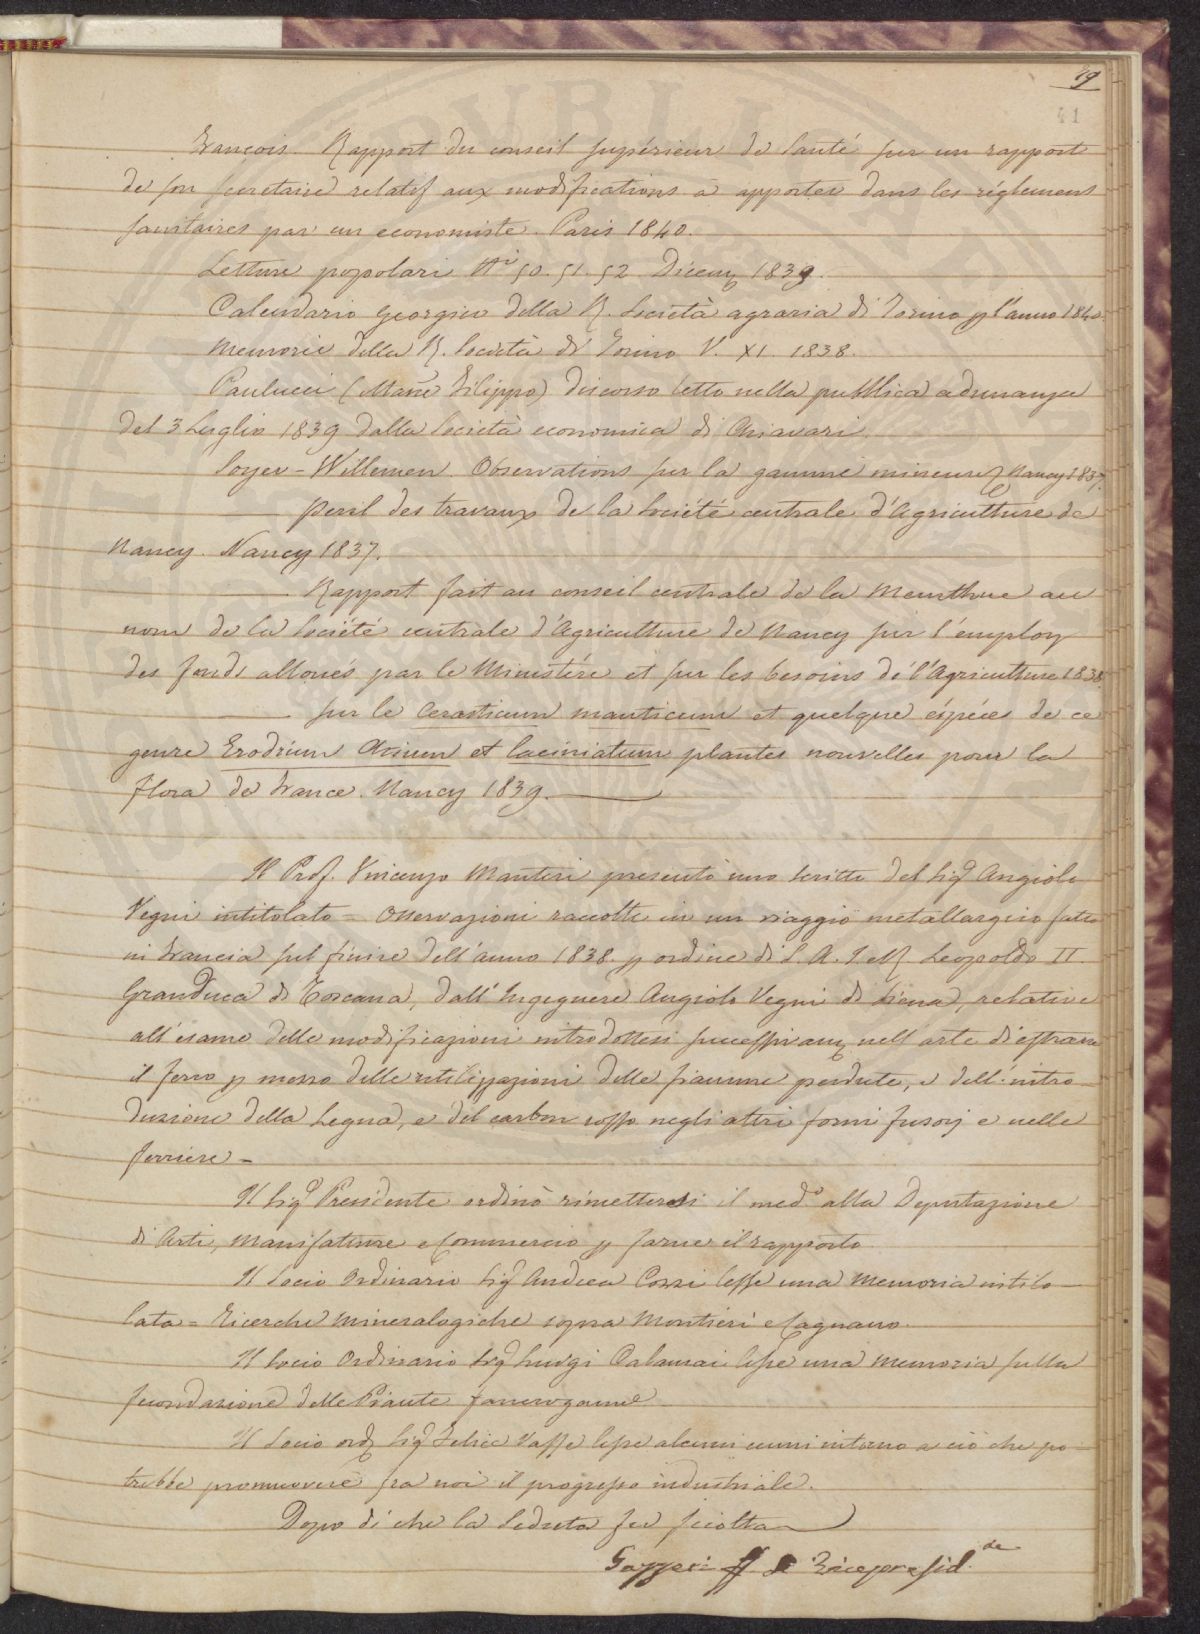 39
41
Francois Rapport du conseil supérieur de Santé sur un rapport
de son secretaire relatif aux modifications a apporter dans les réglemens
sanitaires par un economiste. Paris 1840.
Letture popolari Ni 50. 51. 52 Dicem 1839.
Calendario georgico della R. Società agraria di Torino p l'anno 1840.
Memorie della R. Società di Torino V. XI. 1838.
Paulucci (March Filippo) discorso letto nella pubblica adunanza
del 3 Luglio 1839 dalla Società economica di Chiavari.
Soyer-Willemen Observations sur la gamme mineure Nancy 1837.
des travaux de la Société centrale d'Agriculture de
Nancy. Nancy 1837.
Rapport fait au conseil centrale de la Meurthue au
nom de la Société centrale d'Agriculture de Nancy sur l'employ
des fonds alloués par le Ministére et sur les besoins de l'Agriculture 1838.
sur le Cerasticum manticum et quelque éspéces de ce
genre Erodium Ciconium et laciniatum plantes nouvelles pour la
flora de France. Nancy 1839.
Il Prof. Vincenzo Manteri presentò uno scritto del Sig Angiolo
Vegni intitolato = Osservazioni raccolte in un viaggio metallurgico fatto
in Francia sul finire dell'anno 1838. p ordine di S. A. I e R Leopoldo II.
Granduca di Toscana, dall'Ingegnere Angiolo Vegni di Siena, relative
all'esame delle modificazioni introdottesi successivam nell'arte di estrarre
il ferro p mezzo delle utilizzazioni delle fiamme perdute, e dell'intro-
duzione della Legna, e del carbon rosso negli altri forni fusorj e nelle
ferriere -
Il Sig Presidente ordinò rimettersi il medo alla Deputazione
di Arti, Manifatture e Commercio p farne il rapporto
Il Socio Ordinario Sig Andrea Cozzi lesse una Memoria intito-
lata = Ricerche Mineralogiche sopra Montieri e Cagnano.
Il Socio Ordinario Sig Luigi Calamai lesse una Memoria sulla
fecondazione delle Piante fanerogame
Il Socio ord Sig Felice Vasse lesse alcuni cenni intorno a ciò che po-
trebbe promuovere fra noi il progresso industriale.
Dopo di che la Seduta fu sciolta
Gazzeri ff di Vicepresid.de